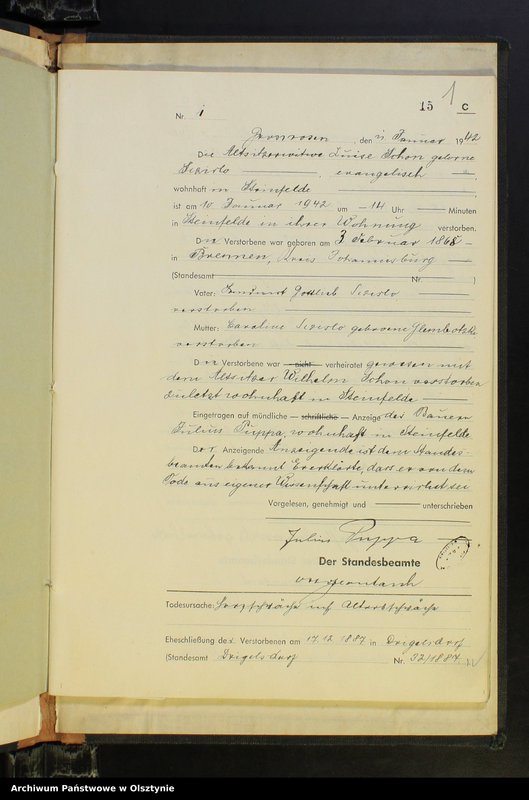 15 1 C
Nr. 1
Grossrosen, den 11. Januar 1942
Die Altsitzerwitwe Luise Schon geborene
evangelisch
wohnhaft in Steinfelde
ist am 10. Januar 1942 um 14 Uhr Minuten
in Steinfelde in ihrer Wohnung verstorben.
Die Verstorbene war geboren am 3. Februar 1868
in Brennen, Kreis Johannisburg
(Standesamt Nr. )
Vater: Gottlieb
verstorben
Mutter: Caroline geborene
verstorben
Die Verstorbene war nicht verheiratet gewesen mit
dem Altsitzer Wilhelm Schon verstorben
zuletzt wohnhaft in Steinfelde
Eingetragen auf mündliche schriftliche Anzeige des Bauern
Julius Puppa, wohnhaft in Steinfelde
Der Anzeigende Anzeigende ist dem Standes-
beamten bekannt. Er erklärte, dass er von dem
Tode aus eigener Wissenschaft unterrichtet sei
Vorgelesen, genehmigt und unterschrieben
Julius Puppa
Der Standesbeamte
Todesursache: Herzschwäche und Altersschwäche
Eheschließung der Verstorbenen am 17.12.1887 in Drigelsdorf
(Standesamt Drigelsdorf Nr. 32/1887)
Archiwum Państwowe w Olsztynie